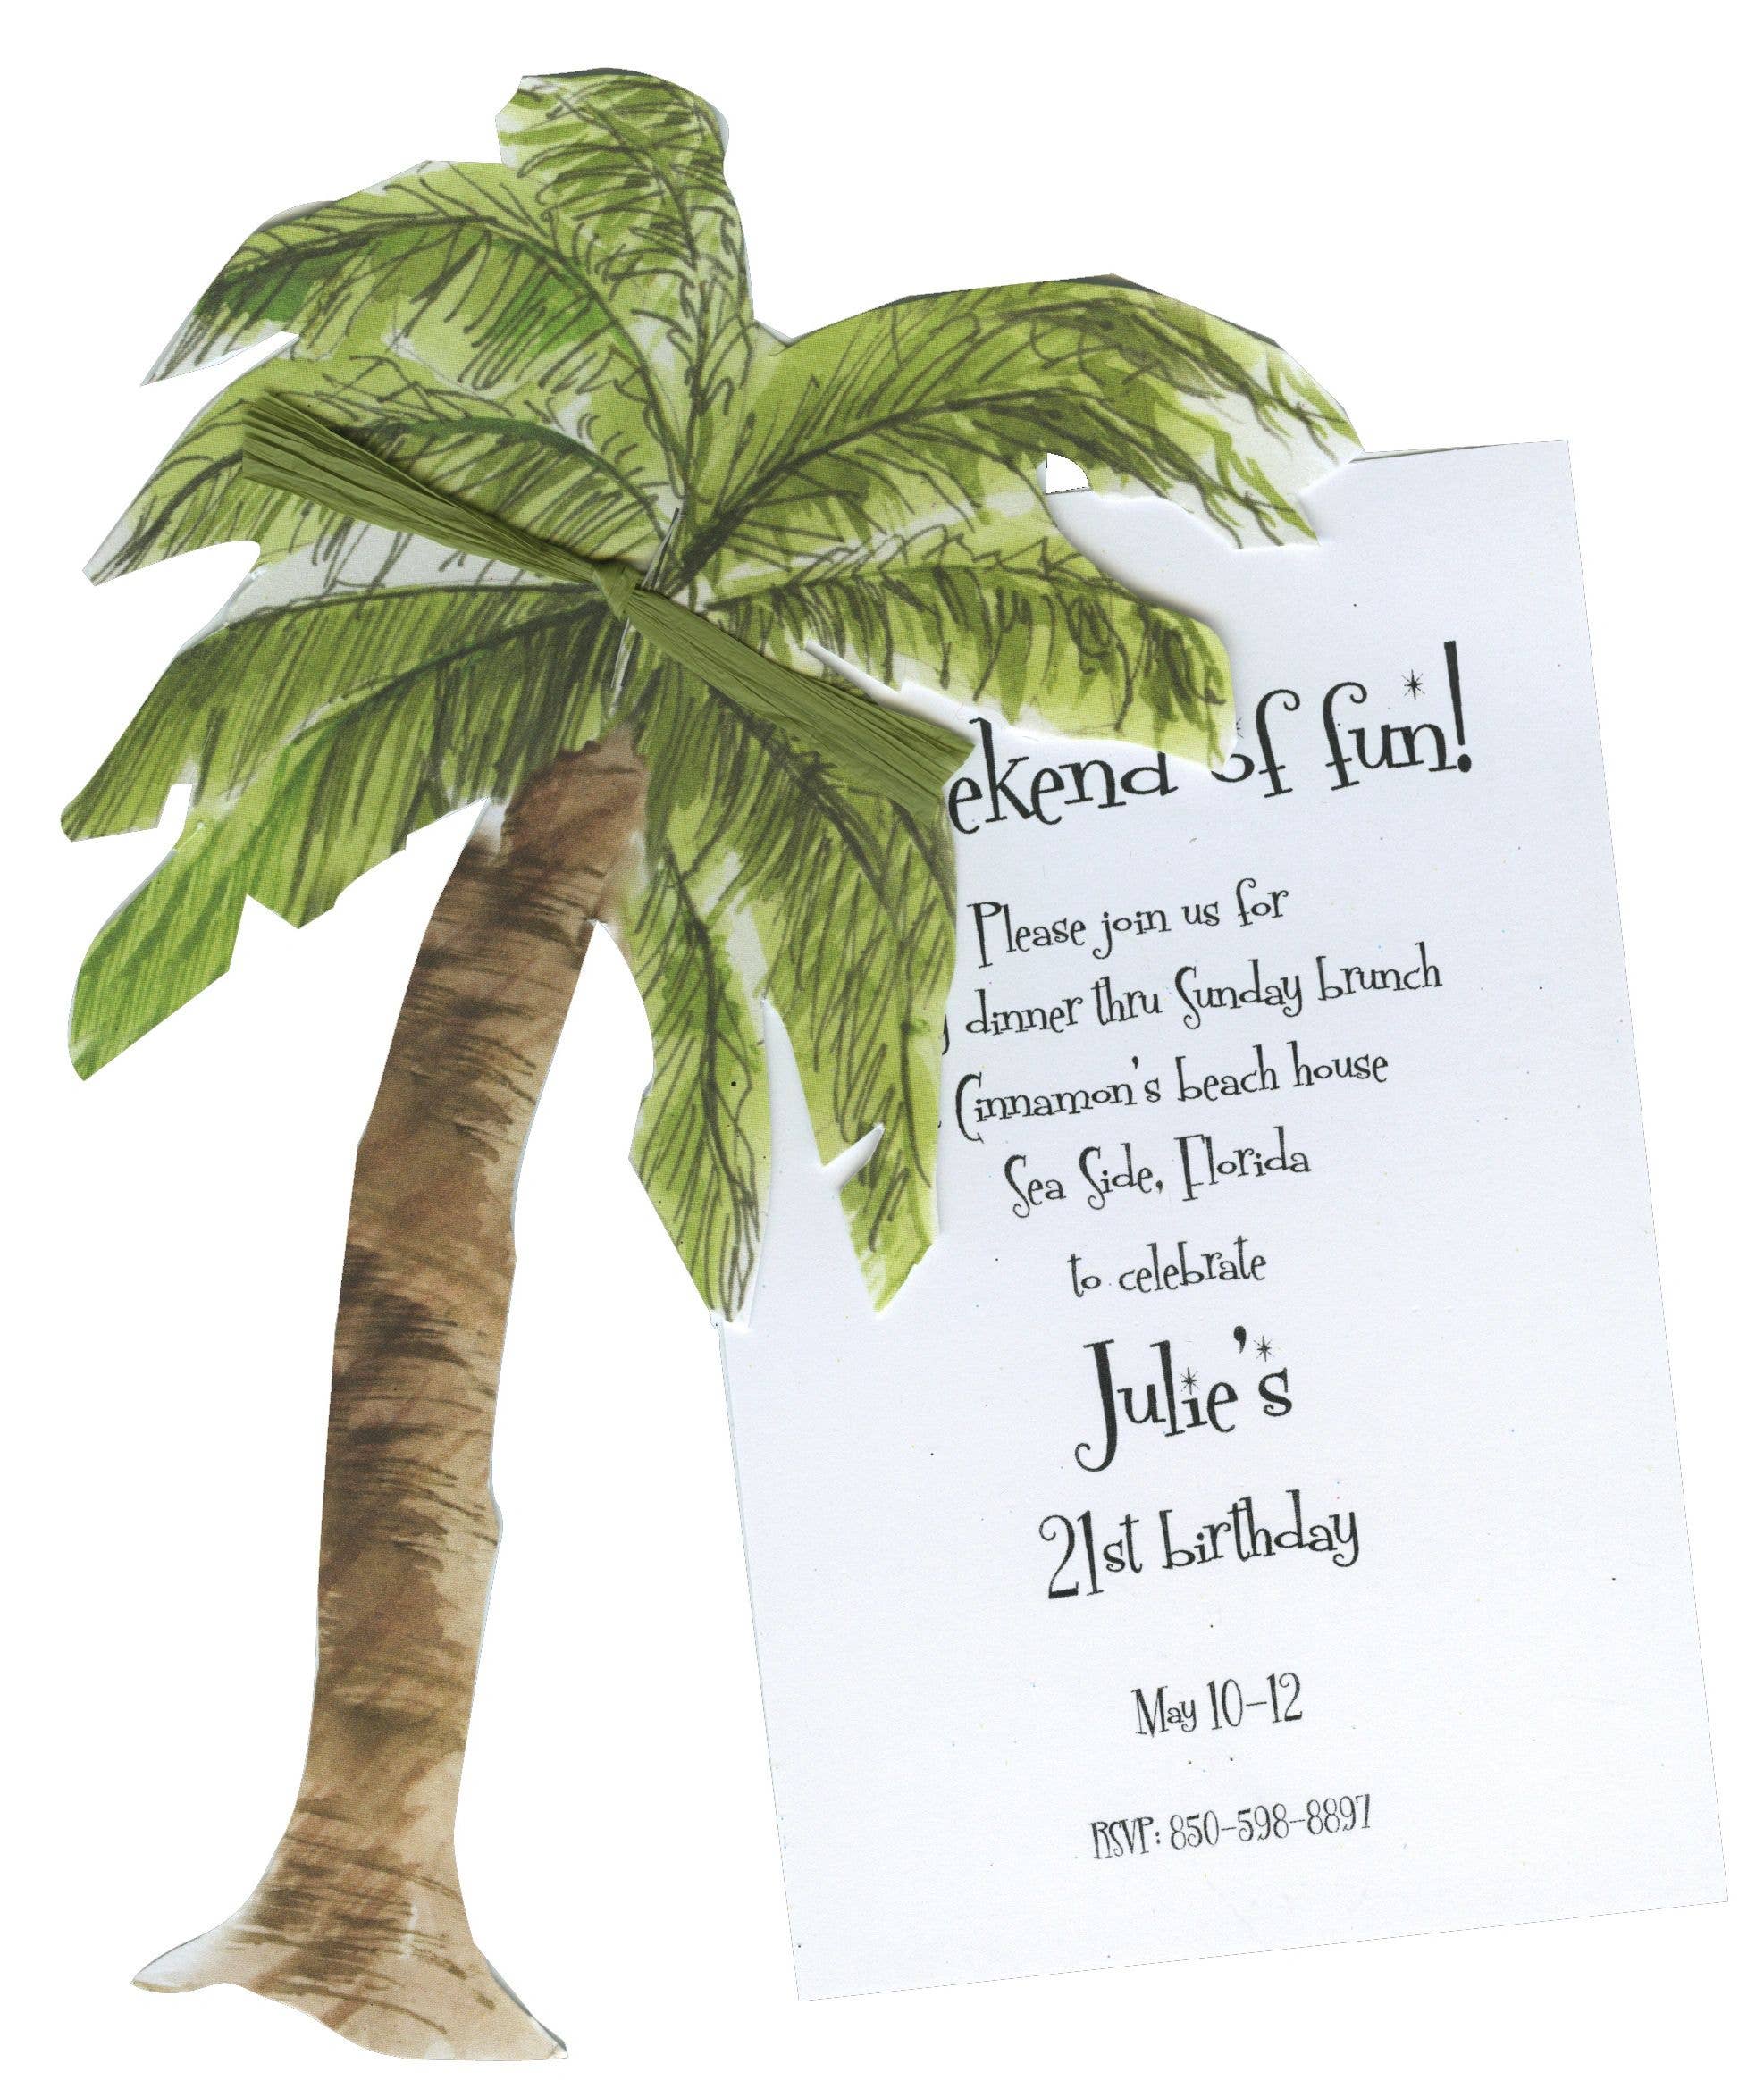 ekend of fun!
Please join us for
y dinner thru Sunday brunch
Cinnamon's beach house
Sea Side, Florida
to celebrate
Julie's
21st birthday
May 10-12
RSVP: 850-598-8897